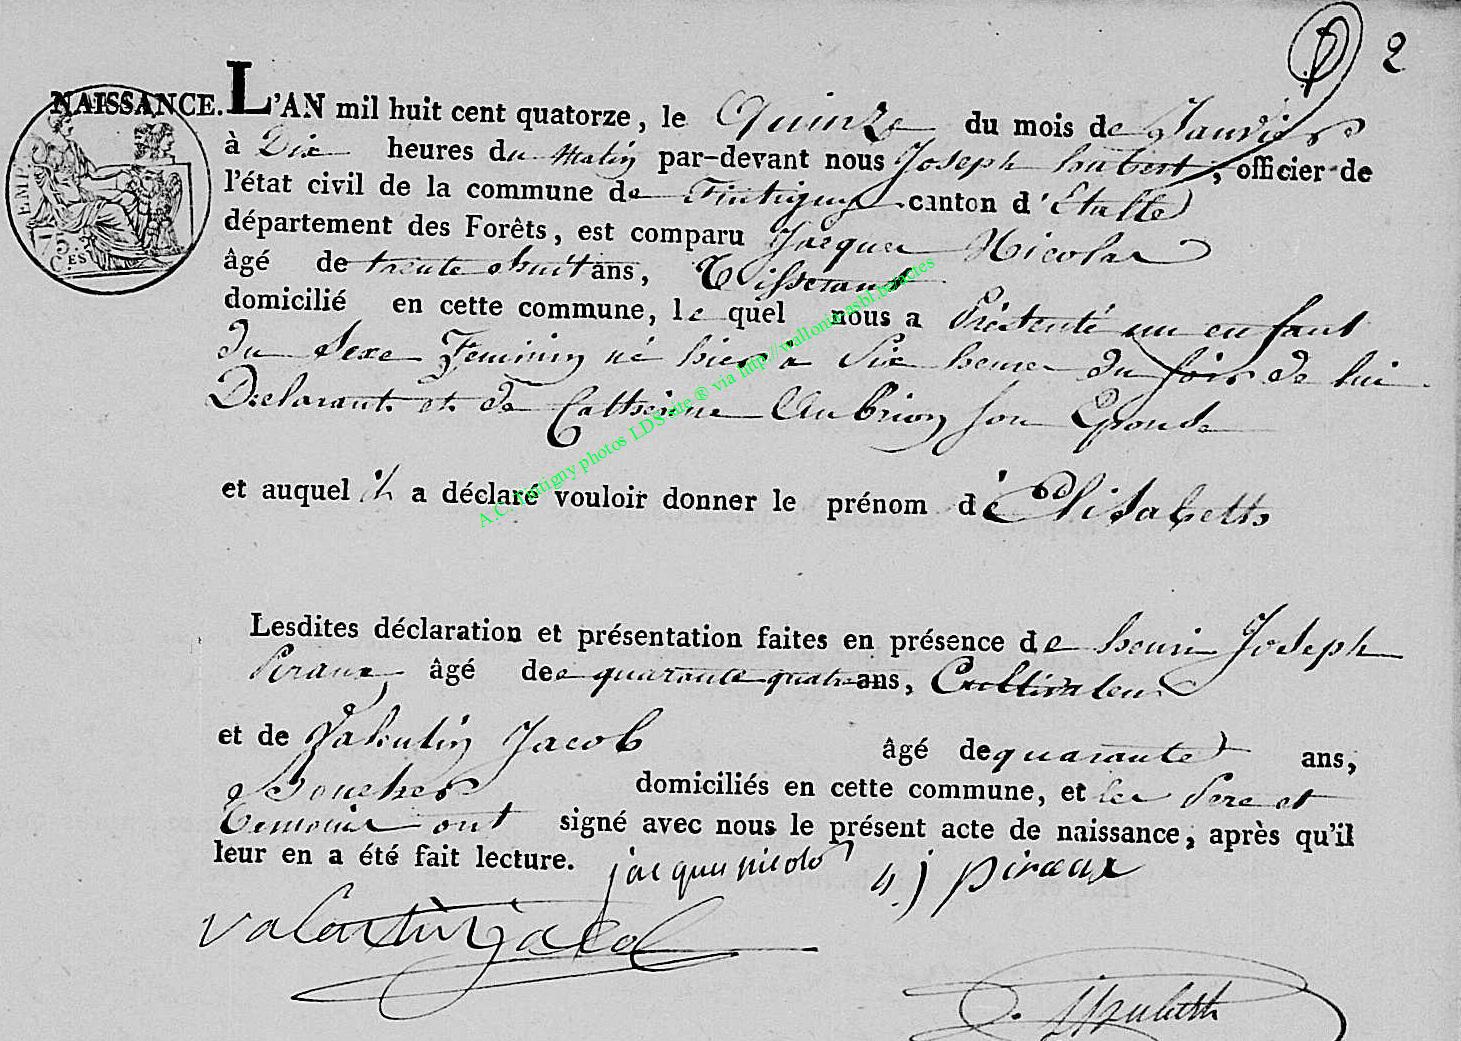 2
NAISSANCE. L'AN mil huit cent quatorze, le Quinze du mois de Janvier
à Dix heures du Matin par-devant nous Joseph hubert, officier de
l'état civil de la commune de Tintigny canton d'Etalle
département des Forêts, est comparu Jacques Nicolas
âgé de trente huit ans, Tisserant
domicilié en cette commune, le quel nous a Présenté un enfant
du Sexe Feminin né hier à Six heures du soir de lui
Declarant et de Catherine Aubrion son Epouse
et auquel il a déclaré vouloir donner le prénom d'Elisabeth
Lesdites déclaration et présentation faites en présence de henri Joseph
Piraux âgé de quarante quatre ans, Cultivateur
et de Valentin Jacob âgé de quarante ans,
Boucher domiciliés en cette commune, et les Pere et
temoins ont signé avec nous le présent acte de naissance, après qu'il
leur en a été fait lecture. jacques nicolas h j piraux
valentin jacob
EMP.
75
C.ES
A.C. Tintigny photos LDS site ® via http://wallonia.asbl.be/actes